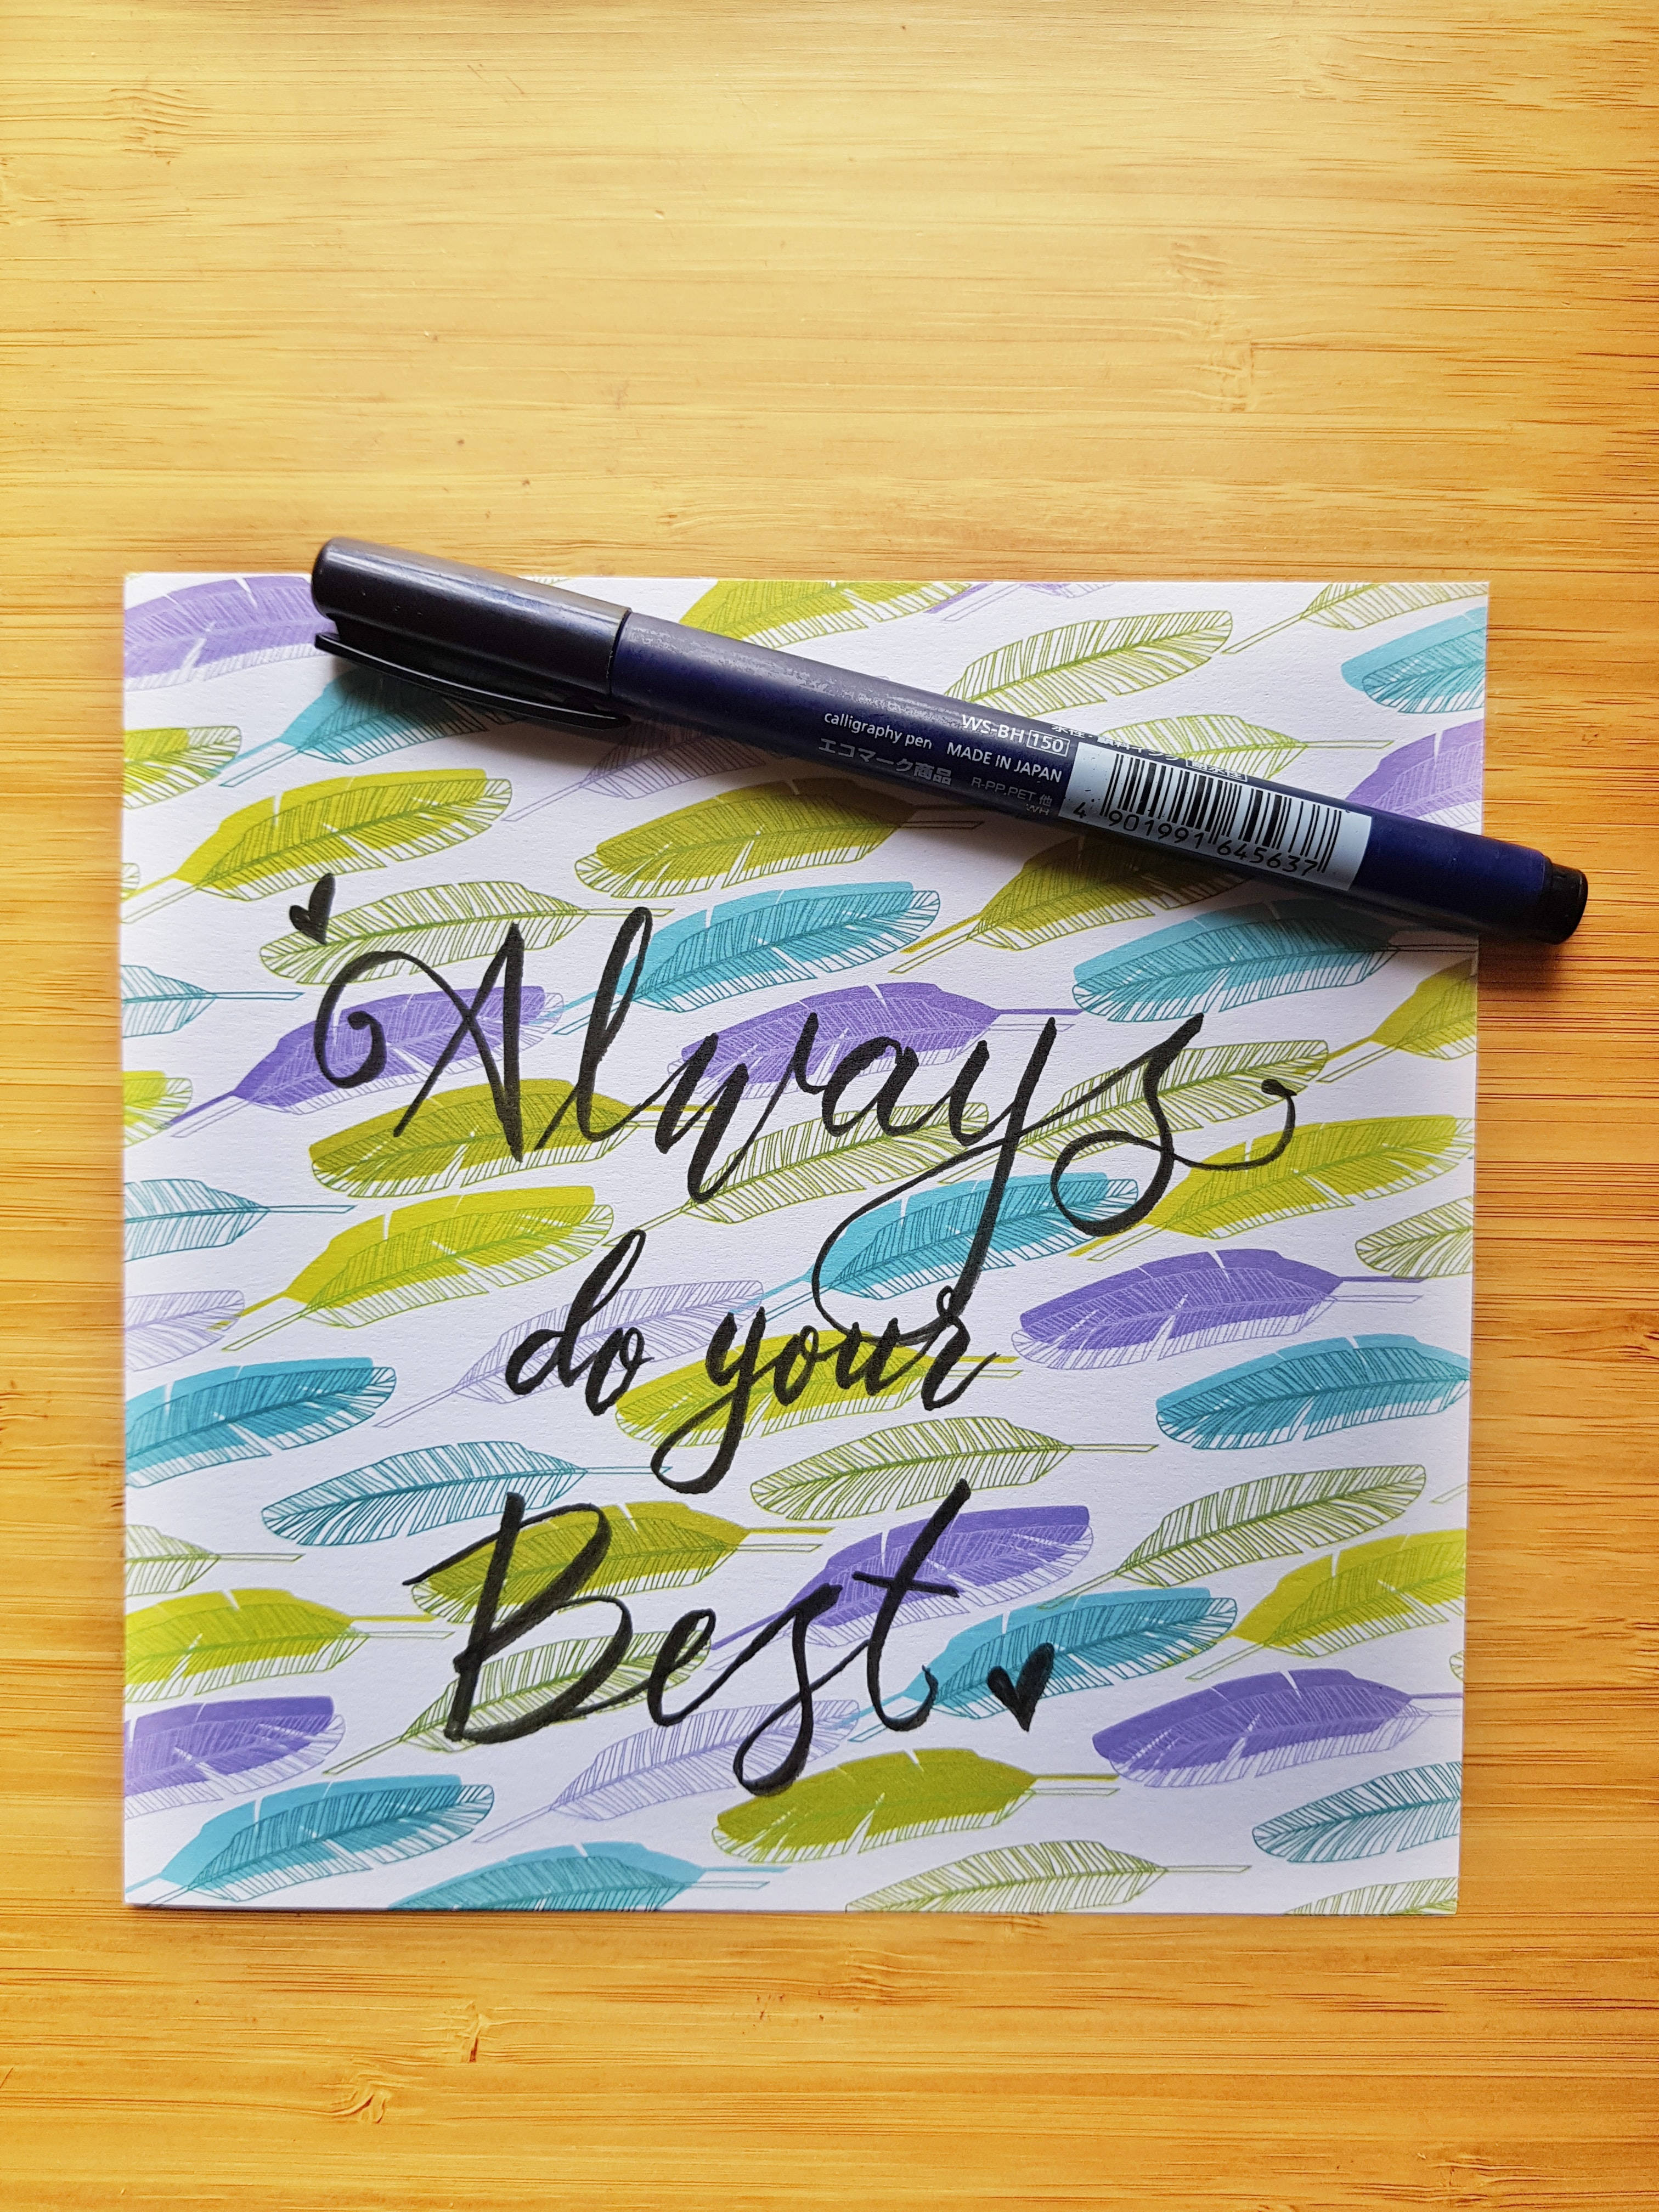 calligraphy pen MADE IN JAPAN
WS-BH 150
エコマーク商品
R-PP,PET,他
WH
4 901991 645637
Always
do your
Best